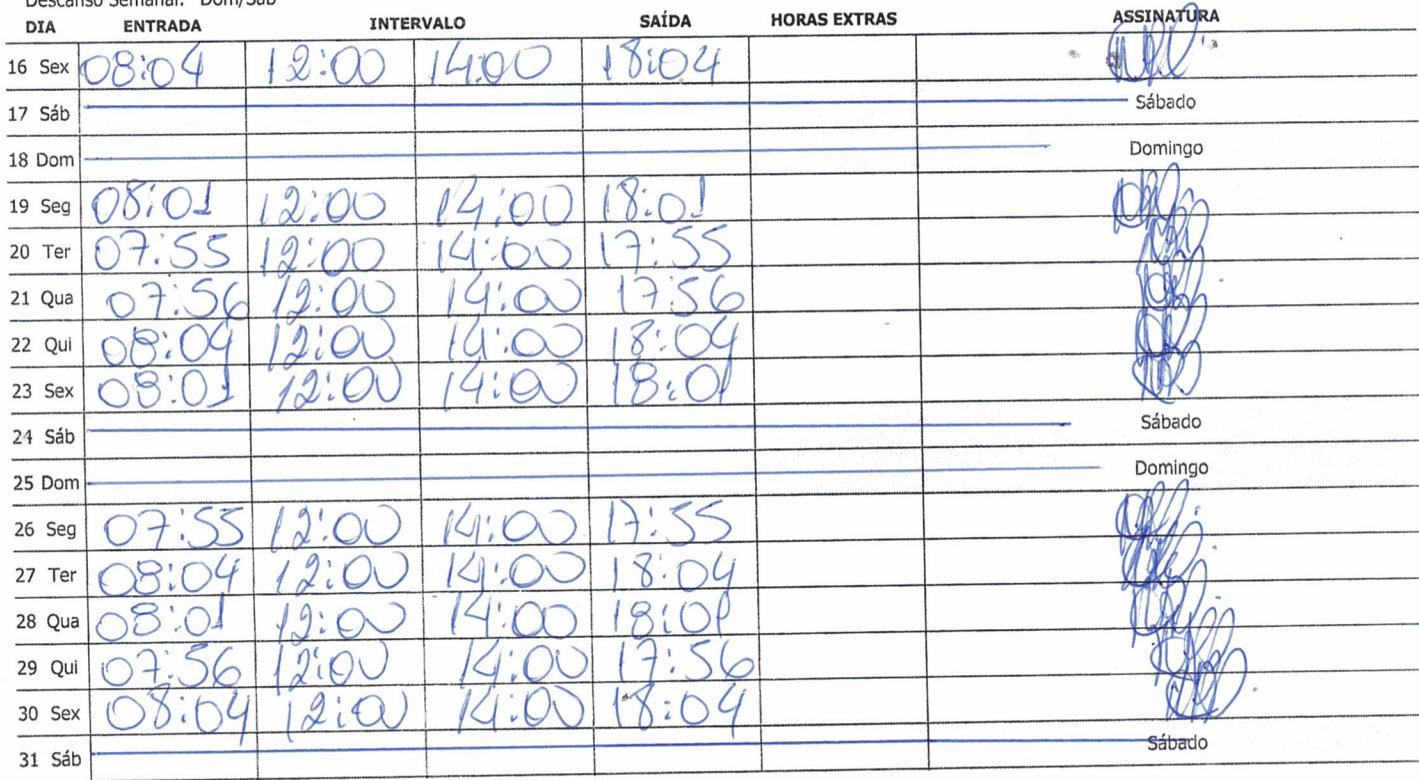 Descanso Semanal: Dom/Sáb
DIA ENTRADA INTERVALO SAÍDA HORAS EXTRAS ASSINATURA
16 Sex 08:04 12:00 14:00 18:04
17 Sáb Sábado
18 Dom Domingo
19 Seg 08:01 12:00 14:00 18:01
20 Ter 07:55 12:00 14:00 17:55
21 Qua 07:56 12:00 14:00 17:56
22 Qui 08:04 12:00 14:00 18:04
23 Sex 08:01 12:00 14:00 18:01
24 Sáb Sábado
25 Dom Domingo
26 Seg 07:55 12:00 14:00 17:55
27 Ter 08:04 12:00 14:00 18:04
28 Qua 08:01 12:00 14:00 18:01
29 Qui 07:56 12:00 14:00 17:56
30 Sex 08:04 12:00 14:00 18:04
31 Sáb Sábado